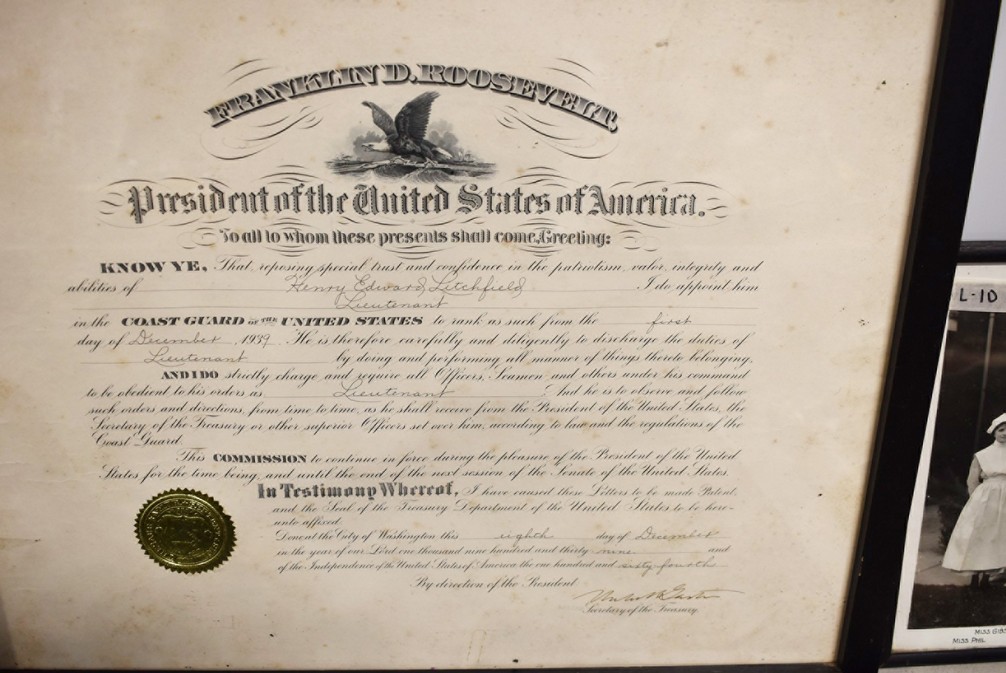 FRANKLIN D. ROOSEVELT,
President of the United States of America.
To all to whom these presents shall come, Greeting:
KNOW YE, That, reposing special trust and confidence in the patriotism, valor, integrity and
abilities of Henry Edward Litchfield I do appoint him
Lieutenant
in the COAST GUARD OF THE UNITED STATES to rank as such from the first
day of December, 1939. He is therefore carefully and diligently to discharge the duties of
Lieutenant by doing and performing all manner of things thereto belonging.
AND I DO strictly charge and require all Officers, Seamen and others under his command
to be obedient to his orders as Lieutenant And he is to observe and follow
such orders and directions, from time to time, as he shall receive from the President of the United States, the
Secretary of the Treasury or other superior Officers set over him, according to law and the regulations of the
Coast Guard.
This COMMISSION to continue in force during the pleasure of the President of the United
States for the time being, and until the end of the next session of the Senate of the United States.
In Testimony Whereof, I have caused these Letters to be made Patent,
and the Seal of the Treasury Department of the United States to be here-
unto affixed.
Done at the City of Washington this eighth day of December
in the year of our Lord one thousand nine hundred and thirty-nine and
of the Independence of the United States of America the one hundred and sixty-fourth
By direction of the President:
Secretary of the Treasury
L-10
MISS
MISS PHIL